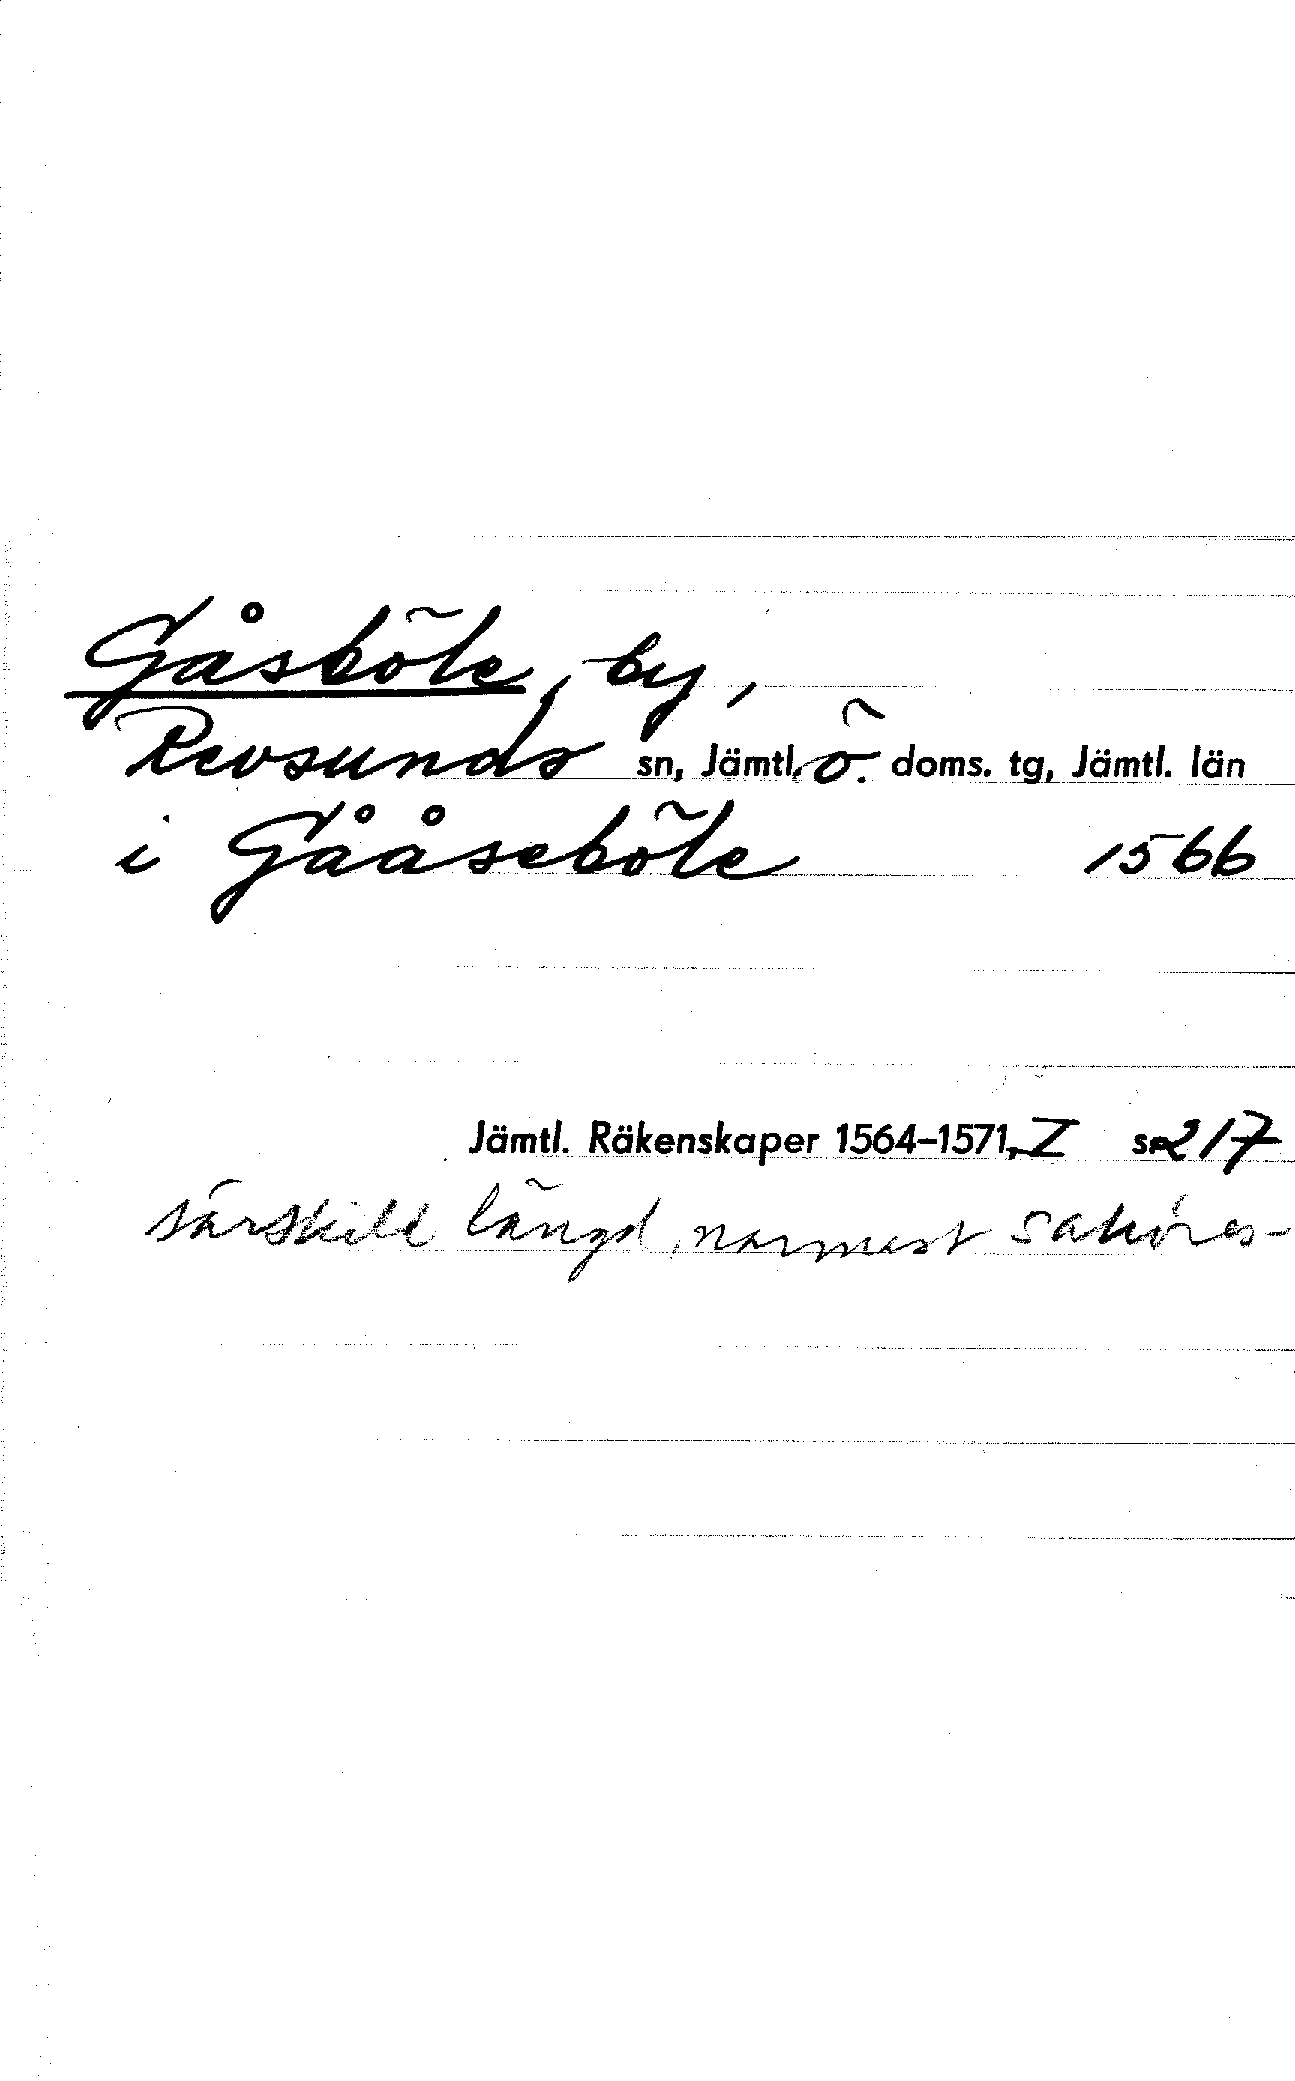 Gåsböle, by,
Revsunds sn, Jämtl. Ö. doms. tg, Jämtl. län
i Gååseböle 1566
Jämtl. Räkenskaper 1564–1571, I s. 217
särskild längd, närmast sakören-